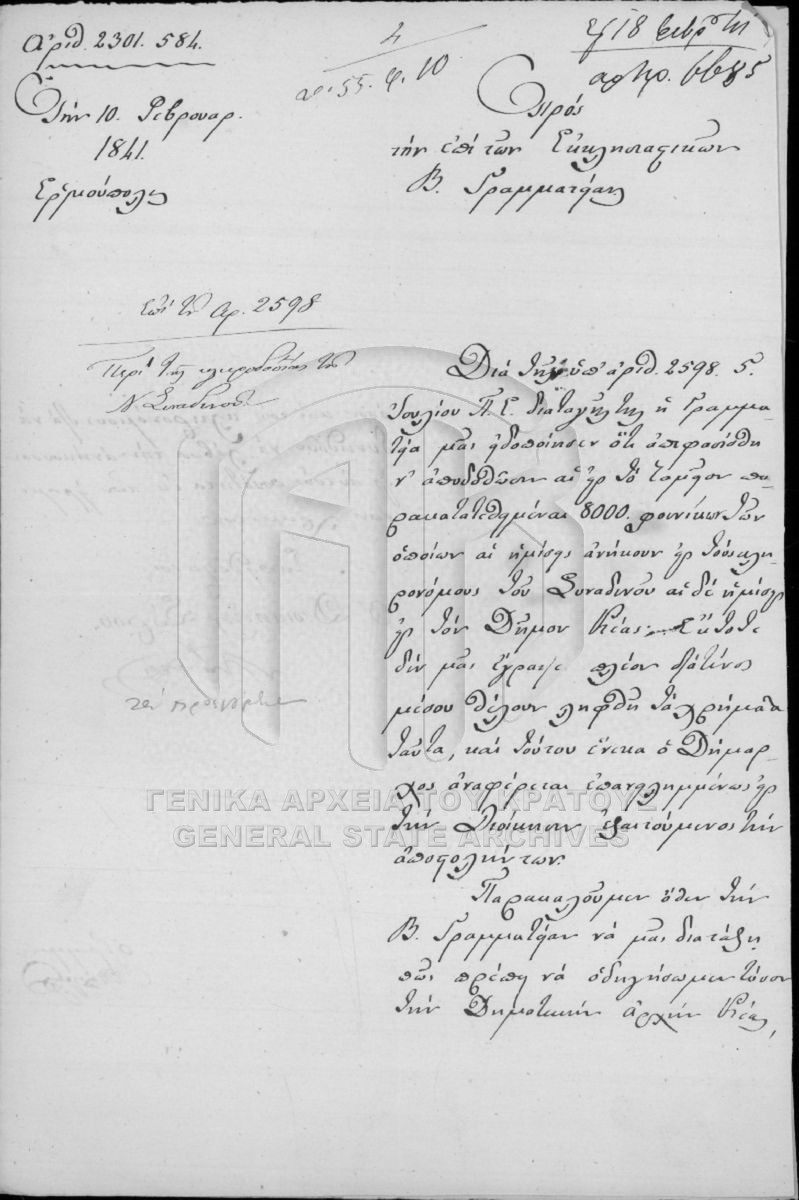 ἀριθ. 2301. 584.
Τὴν 10. Φεβρουαρ.
1841.
Ἑρμούπολις
4
18 Φεβρ
6685
Πρὸς
τὴν ἐπὶ τῶν Ἐκκλησιαστικῶν
Β. Γραμματείαν
Ἐπὶ τοῦ ἀρ. 2598
Περὶ τῆς κληροδοσίας τοῦ
Ν. Συναδινοῦ.
Διὰ τῆς ὑπ' ἀριθ. 2598. 5.
Ἰουλίου Π. Ε. διαταγῆς της ἡ Γραμμα-
τεία μας εἰδοποίησεν ὅτι ἀπεφασίσθη
ν' ἀποδοθῶσιν αἱ εἰς τὸ ταμεῖον πα-
ρακατατεθειμέναι 8000. φοινίκων τῶν
ὁποίων αἱ ἡμίσεις ἀνήκουν εἰς τοὺς κλη-
ρονόμους τοῦ Συναδινοῦ αἱ δὲ ἡμίσεις
εἰς τὸν Δῆμον Κέας· Ἔκτοτε
δὲν μας ἔγραψε πλέον διὰ τίνος
μέσου θέλουν ληφθῆ τὰ χρήματα
ταῦτα, καὶ τούτου ἕνεκα ὁ Δήμαρ-
χος ἀναφέρεται ἐπανειλημμένως εἰς
τὴν Διοίκησιν ἐξαιτούμενος τὴν
ἀποστολήν των.
Παρακαλοῦμεν ὅθεν τὴν
Β. Γραμματείαν νὰ μας διατάξῃ
πῶς πρέπει νὰ ὁδηγήσωμεν τόσον
τὴν Δημοτικὴν ἀρχὴν Κέας,
ΓΕΝΙΚΑ ΑΡΧΕΙΑ ΤΟΥ ΚΡΑΤΟΥΣ
GENERAL STATE ARCHIVES